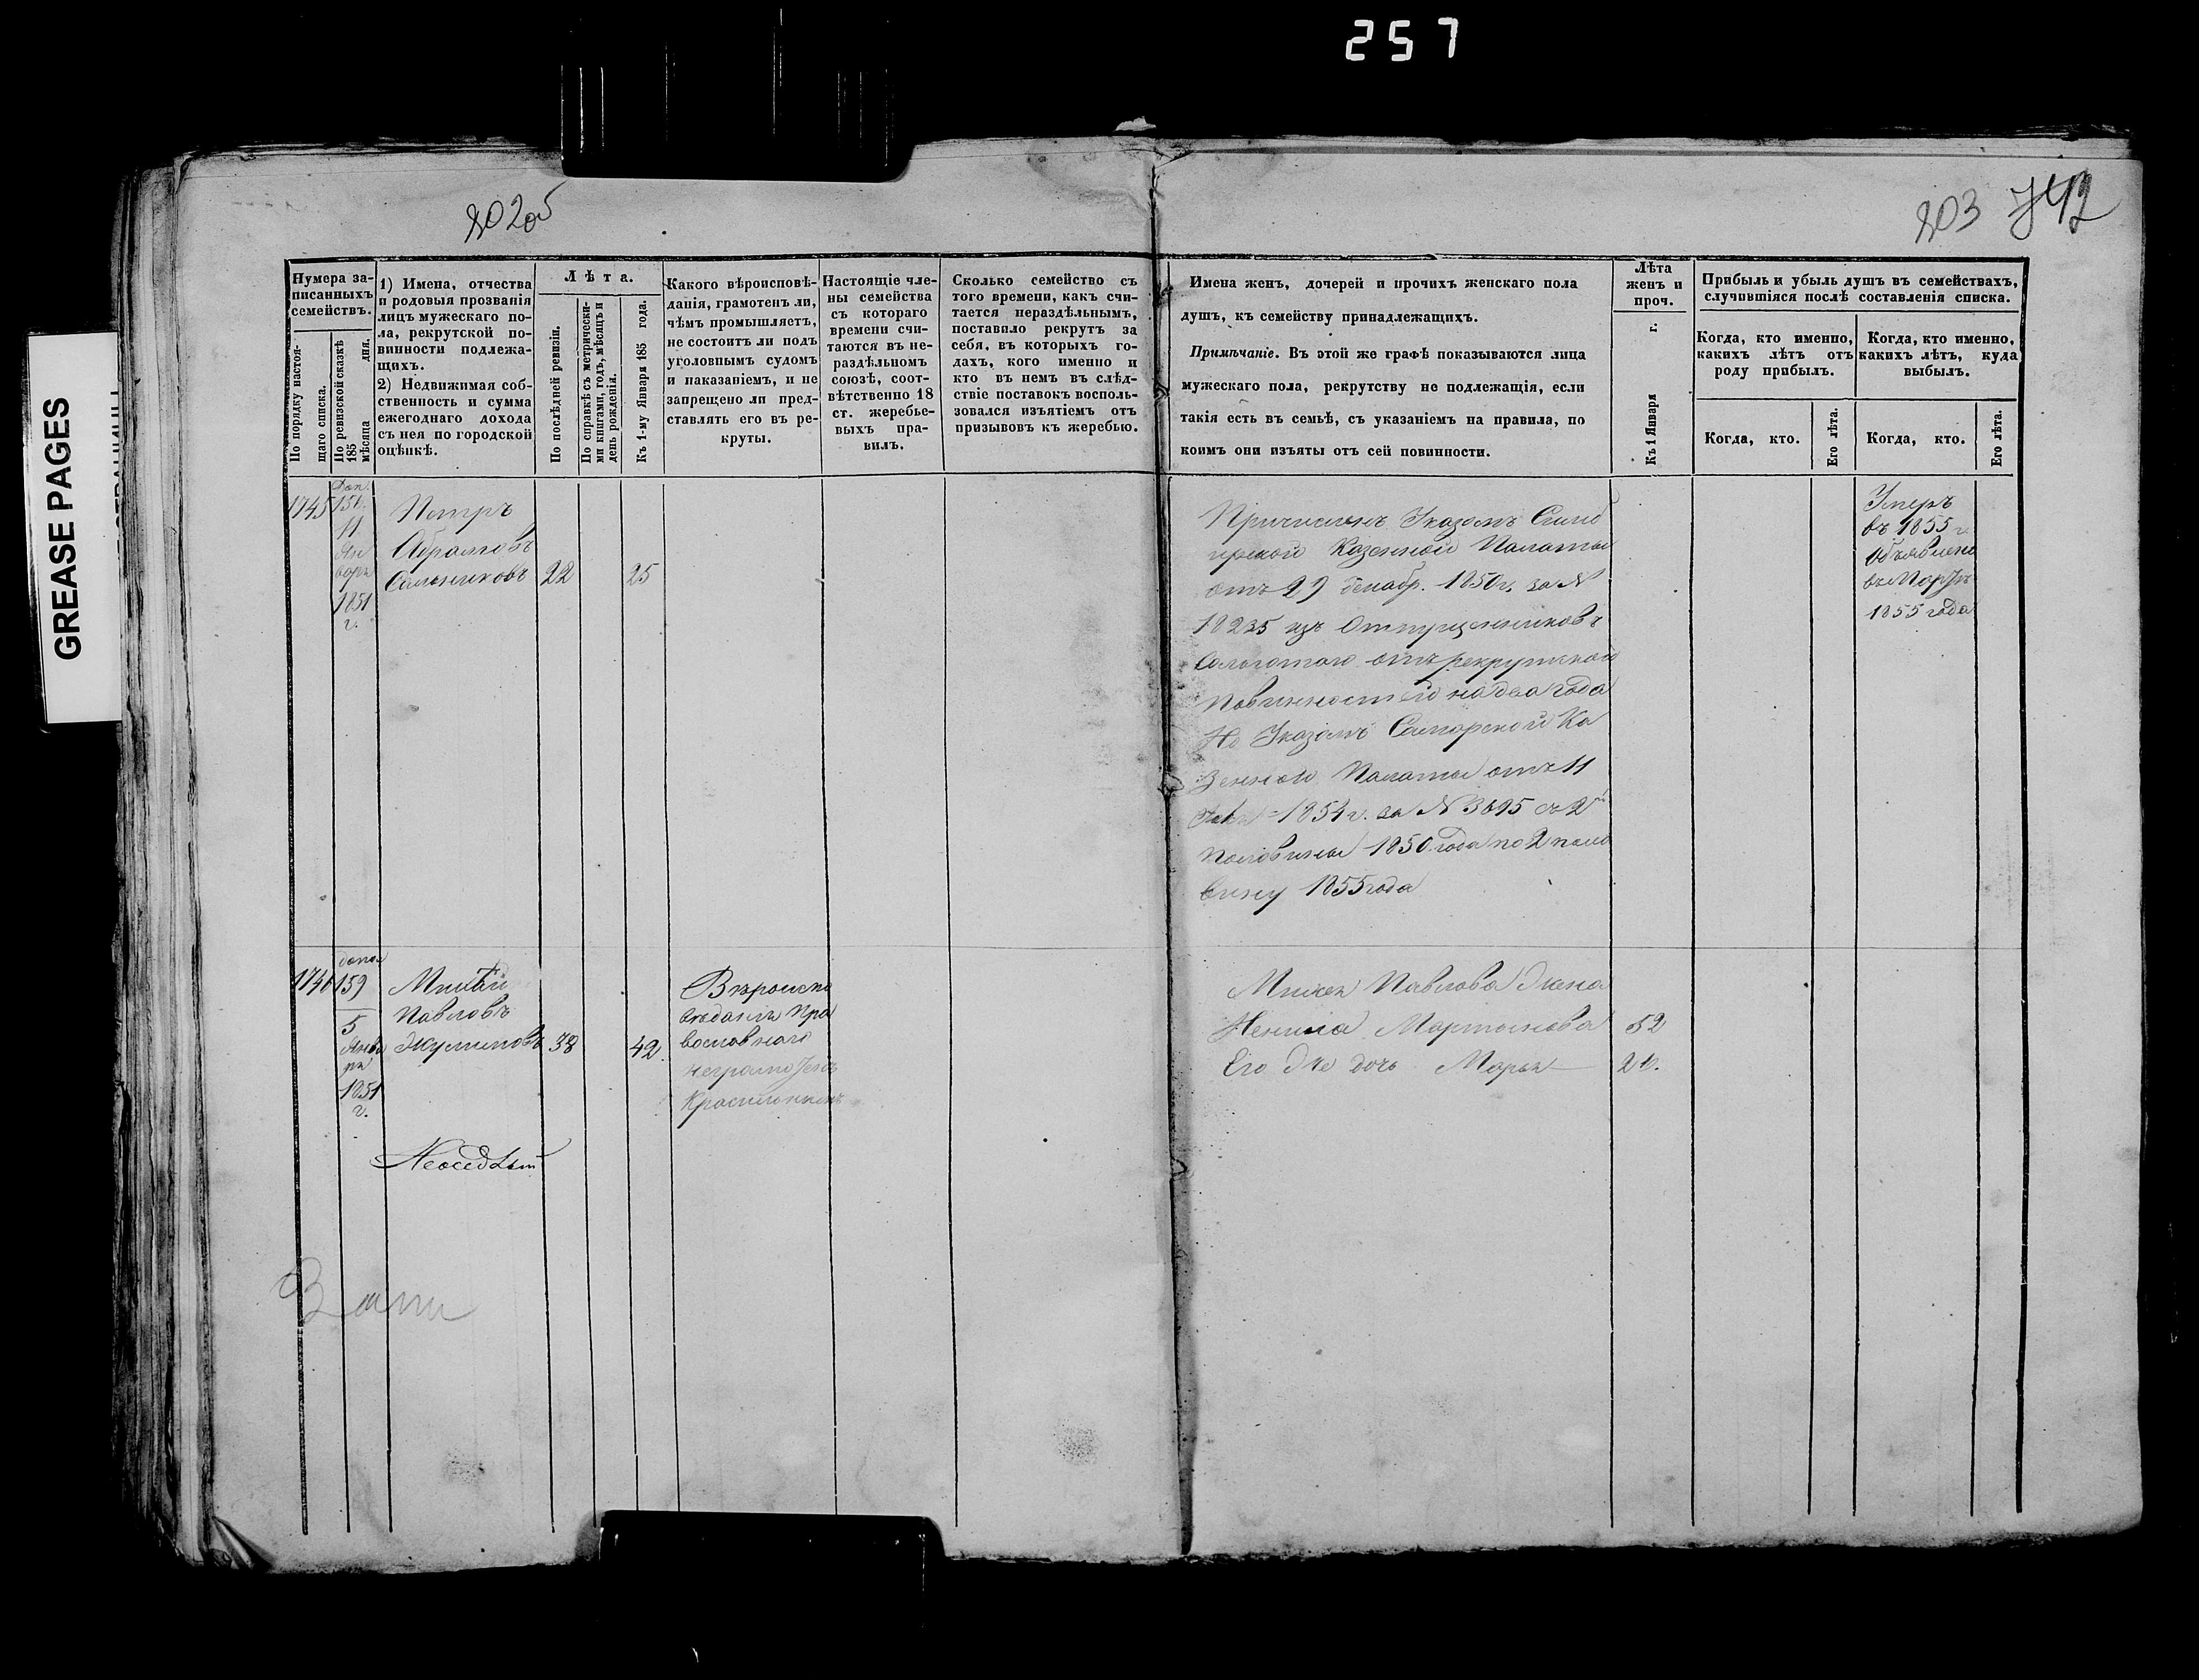 257
GREASE PAGES
202об
203 742
Нумера записанныхъ семействъ.
По порядку настоящаго списка.
По ревизской сказкѣ 185 мѣсяца дня.
1) Имена, отчества
и родовыя прозванія
лицъ мужескаго по-
ла, рекрутской по-
винности подлежа-
щихъ.
2) Недвижимая соб-
ственность и сумма
ежегоднаго дохода
съ нея по городской
оцѣнкѣ.
Лѣта.
По послѣдней ревизіи.
По справкѣ съ метрически-
ми книгами, годъ, мѣсяцъ и
день рожденія.
Къ 1-му Января 185 года.
Какого вѣроисповѣ-
данія, грамотенъ ли,
чѣмъ промышляетъ,
не состоитъ ли подъ
уголовнымъ судомъ
и наказаніемъ, и не
запрещено ли пред-
ставлять его въ ре-
круты.
Настоящіе чле-
ны семейства
съ котораго
времени счи-
таются въ не-
раздѣльномъ
союзѣ, соот-
вѣтственно 18
ст. жеребье-
выхъ пра-
вилъ.
Сколько семейство съ
того времени, какъ счи-
тается нераздѣльнымъ,
поставило рекрутъ за
себя, въ которыхъ го-
дахъ, кого именно и
кто въ немъ въ слѣд-
ствіе поставокъ восполь-
зовался изъятіемъ отъ
призывовъ къ жеребью.
Имена женъ, дочерей и прочихъ женскаго пола
душъ, къ семейству принадлежащихъ.
Примѣчаніе. Въ этой же графѣ показываются лица
мужескаго пола, рекрутству не подлежащія, если
такія есть въ семьѣ, съ указаніемъ на правила, по
коимъ они изъяты отъ сей повинности.
Лѣта
женъ и
проч.
Къ 1 Января г.
Прибыль и убыль душъ въ семействахъ,
случившіяся послѣ составленія списка.
Когда, кто именно,
какихъ лѣтъ отъ
роду прибылъ.
Когда, кто именно,
какихъ лѣтъ, куда
выбылъ.
Когда, кто.
Его лѣта.
Когда, кто.
Его лѣта.
1745
Доп.
11
Ян
варя
1851
г.
Петръ
Абрамовъ
Сальниковъ 22 25
Причисленъ Указомъ Симб
ирской Казенной Палаты
отъ 29 декабр. 1850 г. за №
18235 изъ Отпущенниковъ
отъ рекрутской
повинности на два года
Но Указомъ Самарской Ка
зенной Палаты отъ 11
1854 г. за № 3695 съ 2й
половины 1850 года по 2 поло
вину 1855 года
Умеръ
въ 1855 г.
Объявлено
въ Мартѣ
1855 года
1746 допол
159
5
Янва
ря
1851
г.
Михай
Павловъ
Жулиновъ 38 42
Вѣроиспо
вѣданія Пра
вославнаго
неграмотенъ
Неоседлый
Михея Павлова Жена
Ненила Мартынова 52
Его же дочь Марья